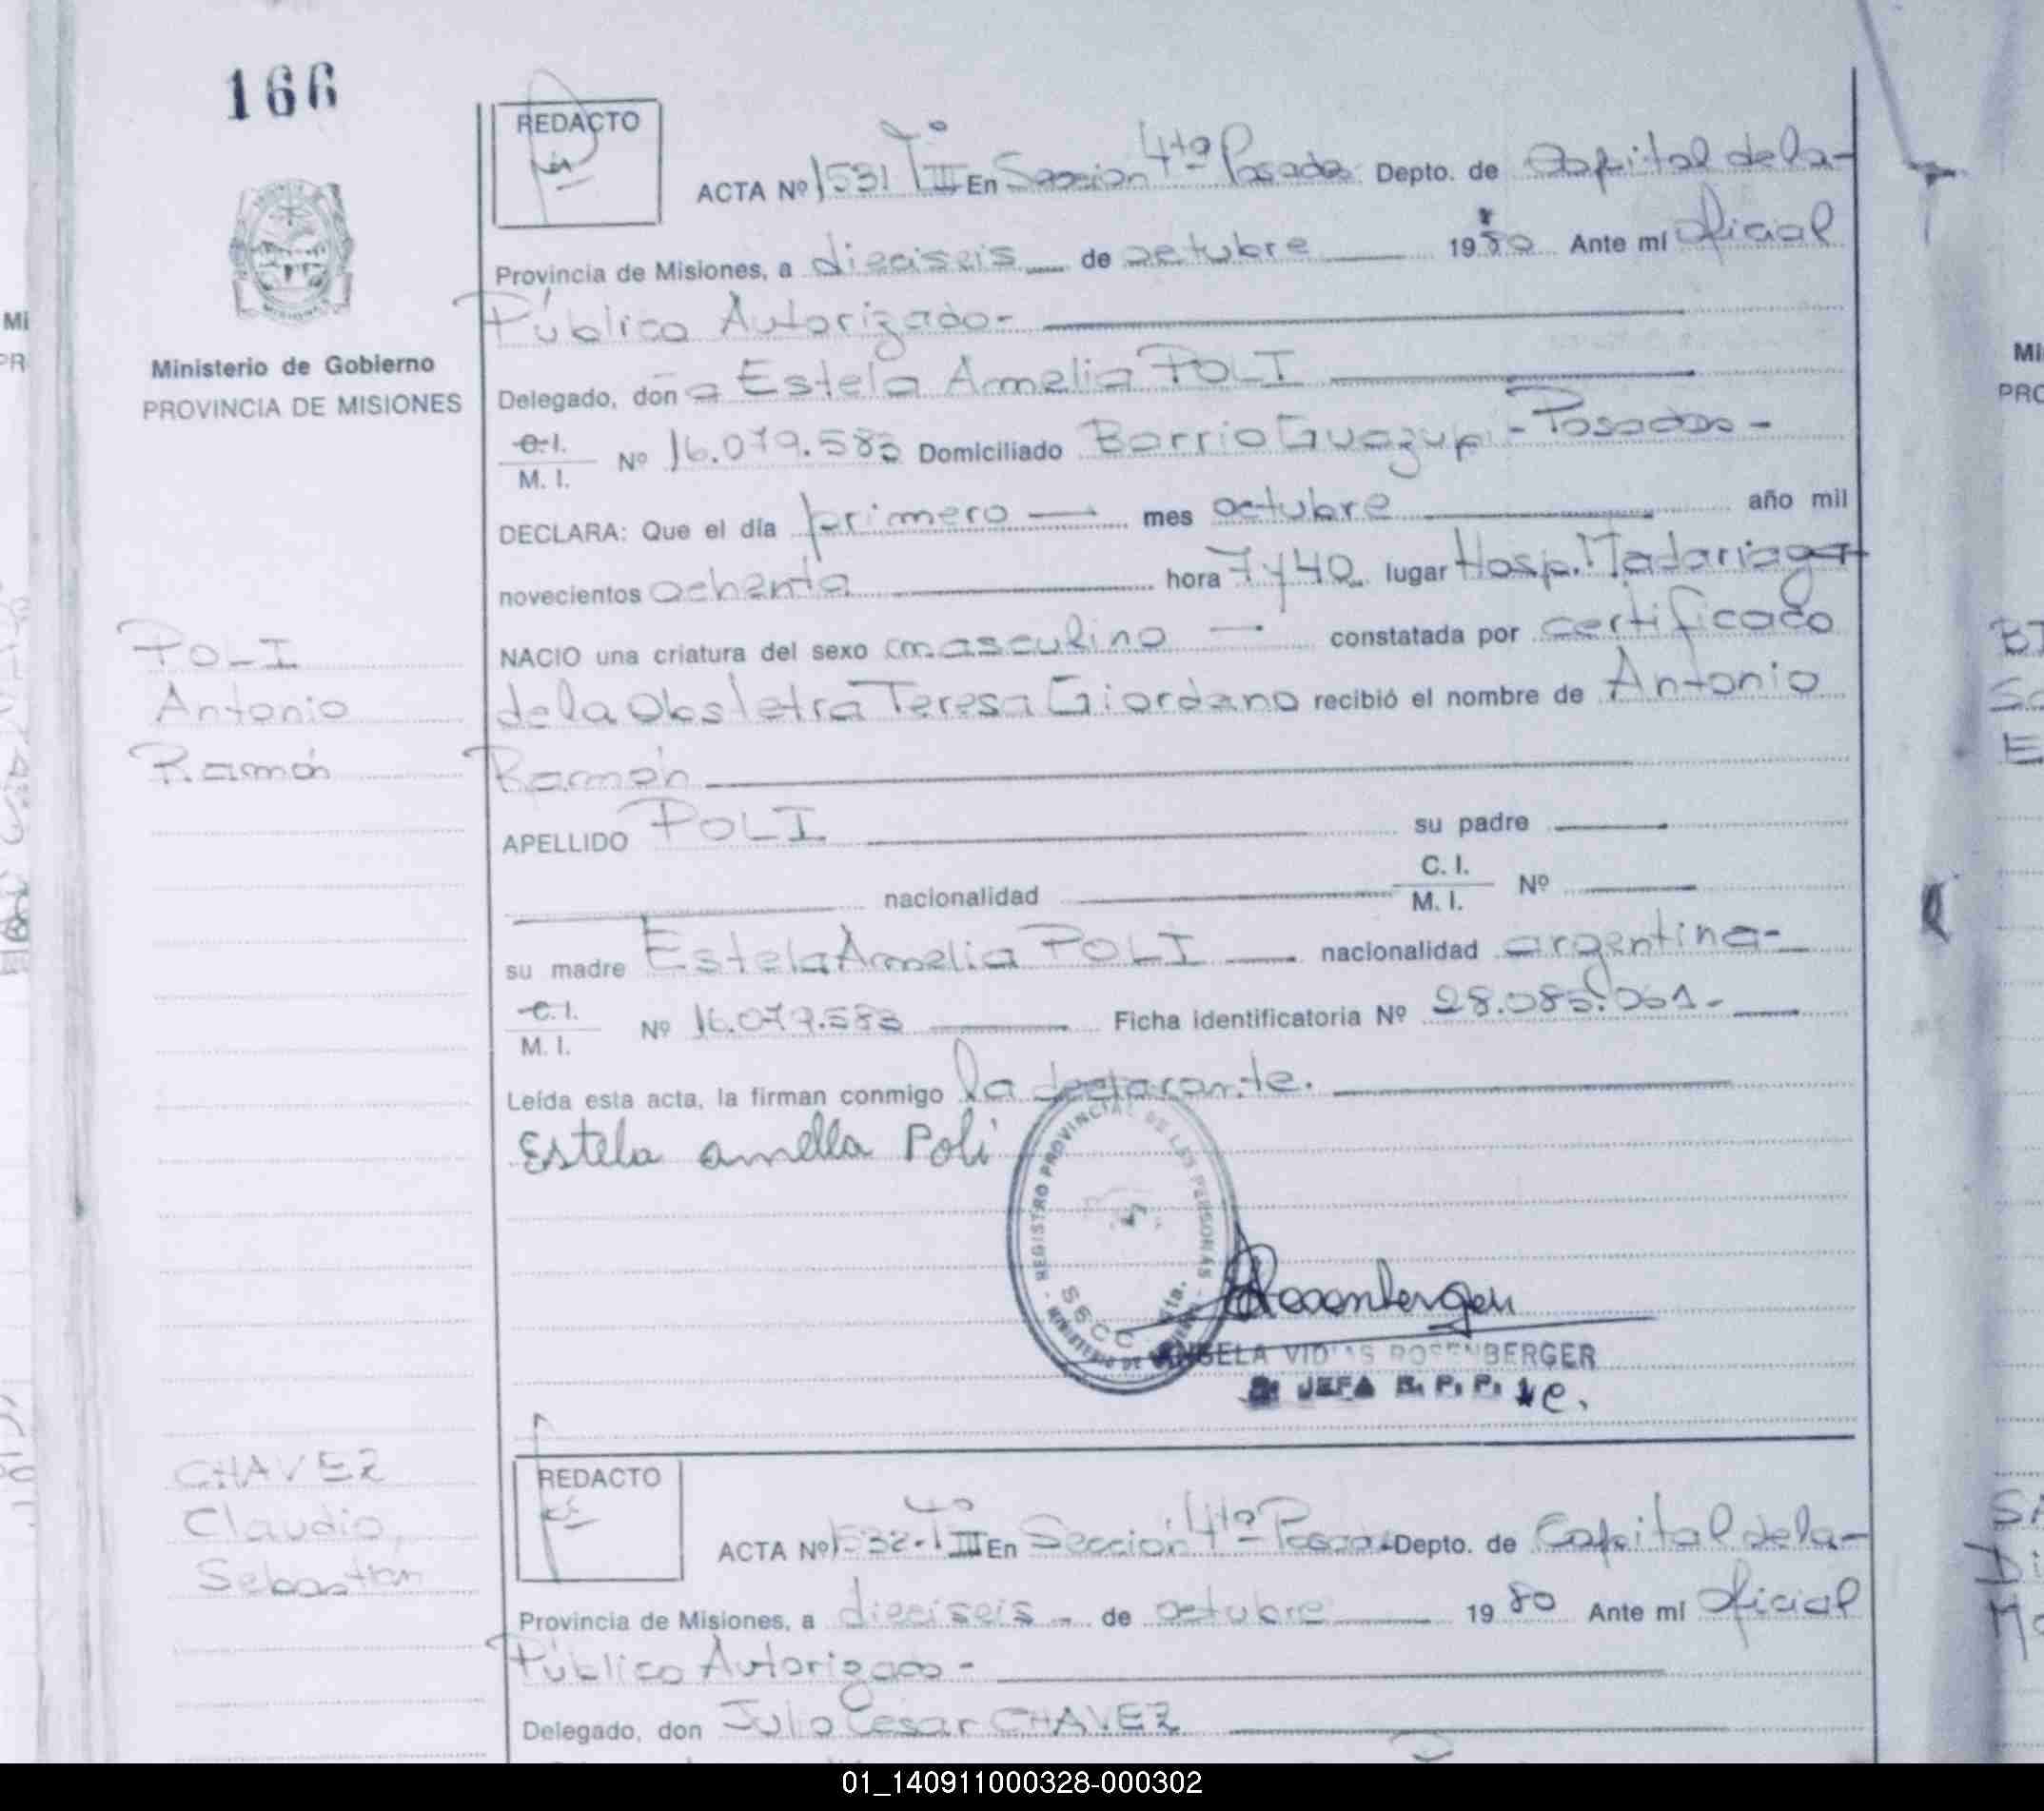 166
REDACTO
ACTA Nº 1531 Tº III En Sección 4ta Posadas Depto. de Capital de la-
Provincia de Misiones, a dieciseis de octubre 1980 Ante mí Oficial
Público Autorizado-
Ministerio de Gobierno
PROVINCIA DE MISIONES
Delegado, don a Estela Amelia POLI
C.I.
M. I. Nº 16.079.583 Domiciliado Barrio Guazupi - Posadas -
DECLARA: Que el día primero mes octubre año mil
novecientos ochenta hora 7 y 40 lugar Hosp. Madariaga
POLI
Antonio
Ramón
NACIO una criatura del sexo masculino constatada por certificado
de la Obstetra Teresa Giordano recibió el nombre de Antonio
Ramón
APELLIDO POLI su padre
nacionalidad C. I.
M. I. Nº
su madre Estela Amelia POLI nacionalidad argentina-
C. I.
M. I. Nº 16.079.583 Ficha identificatoria Nº 28.083.051-
Leída esta acta, la firman conmigo la declarante.
Estela amelia Poli
REGISTRO PROVINCIAL DE LAS PERSONAS
SECC 4ta.
MINISTERIO DE GOBIERNO
Rosenberger
ANGELA VIDAS ROSENBERGER
JEFA R. P. P.
CHAVEZ
Claudio
Sebastian
REDACTO
ACTA Nº 1532-Tº III En Sección 4ta Posadas Depto. de Capital de la-
Provincia de Misiones, a dieciseis - de octubre 1980 Ante mí Oficial
Público Autorizado -
Delegado, don Julio Cesar CHAVEZ
01_140911000328-000302